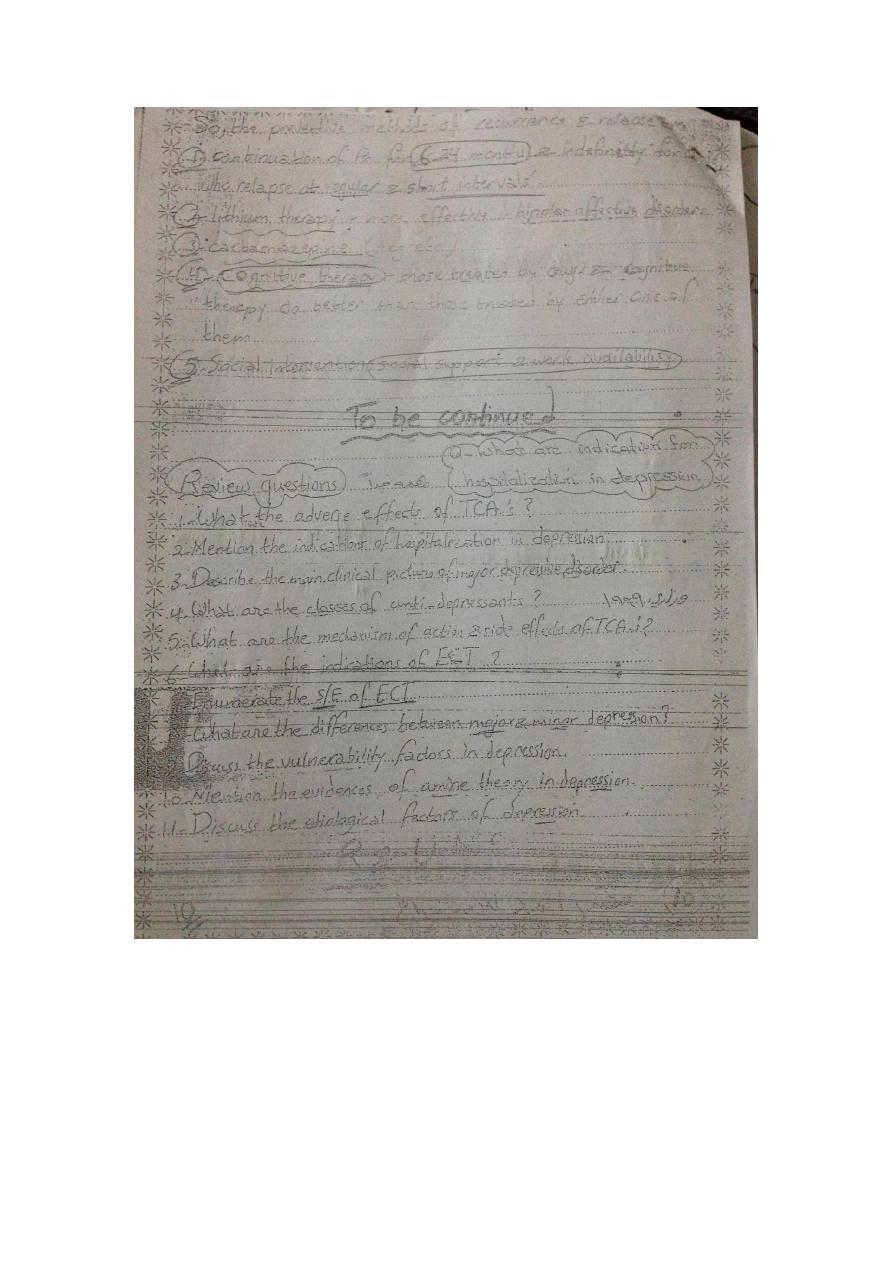 So, the preventive methods of recurrence & relapse
1- continuation of R for 6-24 months & indefinitly for
who relapse at regular & short intervals.
2- lithium therapy - more effective bipolar affective disorder
3- carbamazepine (tegretol)
4- Cognitive therapy - those treated by drugs & cognitive
therapy do better than those treated by either one of
them.
5- Social intervention, social support & work availability
To be continued
Q- What are indication for
hospitalization in depression
Review questions
1- What the adverse effects of TCA's?
2- Mention the indications of hospitalization in depression.
3- Describe the main clinical picture of major depressive disorder.
4- What are the classes of anti-depressants?
5- What are the mechanism of action & side effects of TCA's?
6- What are the indications of ECT?
Enumerate the S/E of ECT
What are the differences between major & minor depression?
Discuss the vulnerability factors in depression.
10- Mention the evidences of amine theory in depression.
11- Discuss the etiological factors of depression
10